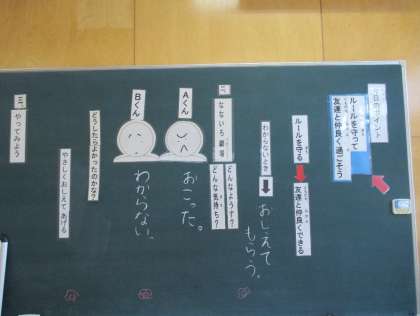 今日のポイント
ルールを守って
友達と仲良く過ごそう
ルールを守る
友達と仲良くできる
わからないとき
おしえて
もらう。
二、
なないろ劇場
どんなようす?
どんな気持ち?
Aくん
おこった。
Bくん
わからない。
どうしたらよかったのかな?
やさしくおしえてあげる
三、
やってみよう